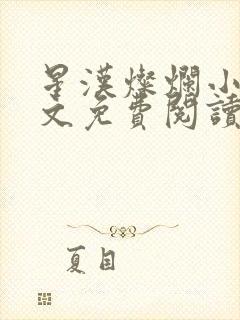 星漢燦爛小
文免費閱讀
夏目